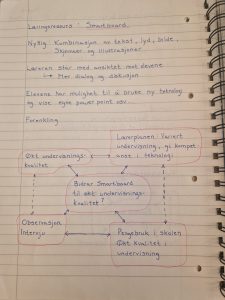 Læringsressurs: Smartboard.
Nyttig: Kombinasjon av tekst, lyd, bilde,
skjemaer og illustrasjoner
Læreren står med ansiktet mot elevene
↳ Mer dialog og diskusjon
Elevene har mulighet til å bruke ny teknologi
og vise egne powerpoint osv.
Forenkling.
Læreplanen: Variert
undervisning, gi kompet
anse i teknologi.
Økt undervisnings-
kvalitet
Bidrar Smartboard
til økt undervisnings-
kvalitet?
Observasjon
Intervju
Pengebruk i skolen
Økt kvalitet i
undervisning